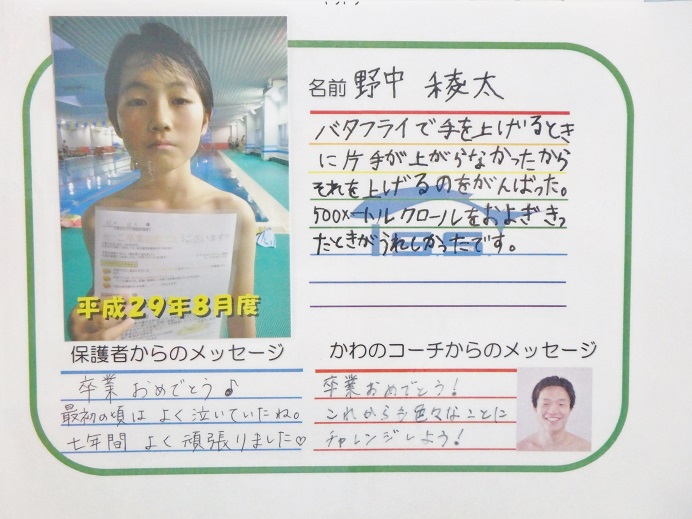 名前 野中 稜太
バタフライで手を上げるとき
に片手が上がらなかったから
それを上げるのをがんばった。
500メートルクロールをおよぎきっ
たときがうれしかったです。
平成29年8月度
保護者からのメッセージ
卒業 おめでとう♪
最初の頃は よく泣いていたね。
七年間 よく頑張りました♡
かわのコーチからのメッセージ
卒業おめでとう!
これからも色々なことに
チャレンジしよう!